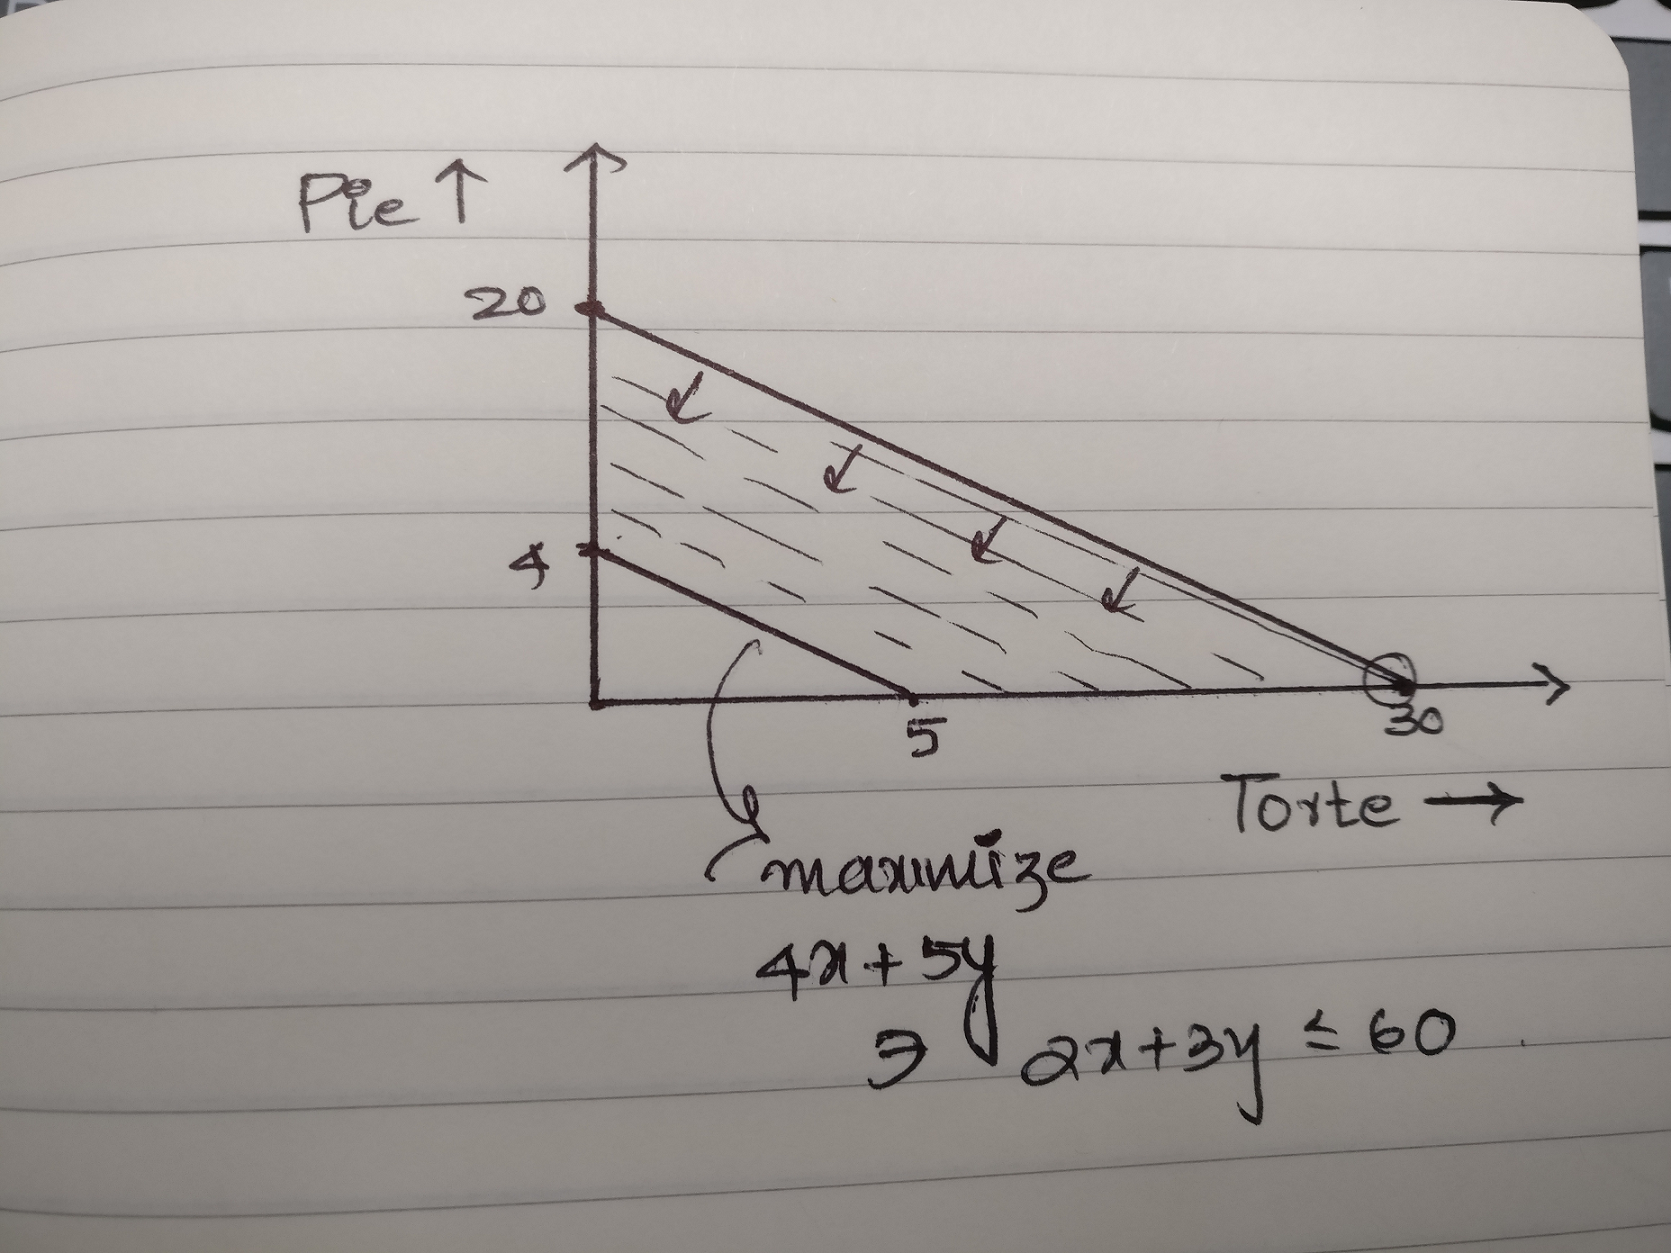 Pie ↑
20
4
5
30
Torte →
maximize
4x + 5y
∋ 2x + 3y ≤ 60